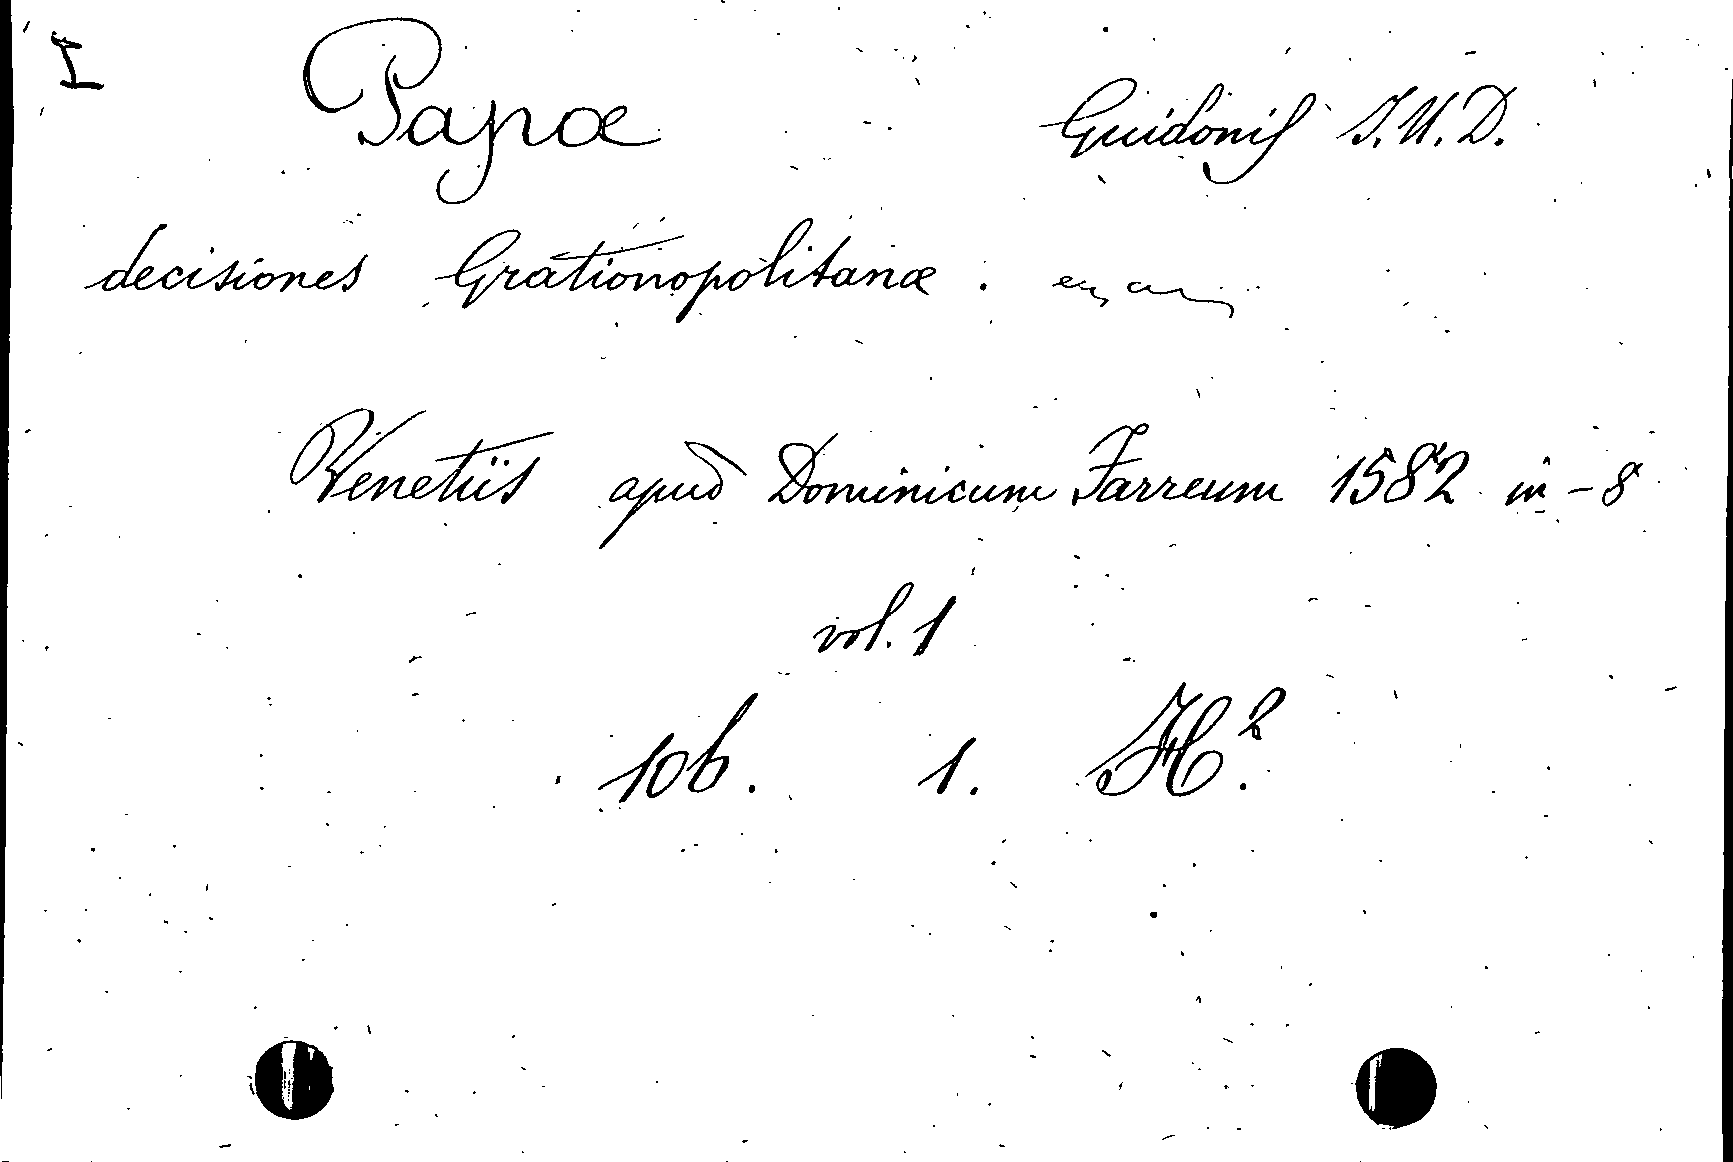 I
Papæ Guidonis I. U. D.
decisiones Grationopolitanæ.
Venetiis apud Dominicum Farreum 1582 in-8
vol. 1
106. 1. H².